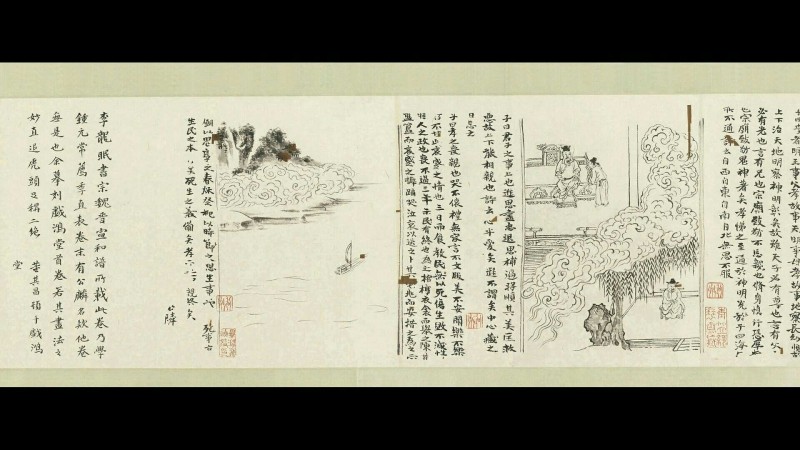 子曰昔者明王事父孝故事天明事母孝故事地察長幼順故
上下治天地明察神明彰矣故雖天子必有尊也言有父
必有先也言有兄也宗廟致敬不忘親也脩身慎行恐辱先
也宗廟致敬鬼神著矣孝悌之至通於神明光于四海
所不通詩云自西自東自南自北無思不服
子曰君子之事上也進思盡忠退思補過將順其美匡救
惡故上下能相親也詩云心乎愛矣遐不謂矣中心藏之
日忘之
子曰孝子之喪親也哭不偯禮無容言不文服美不安聞樂不樂
旨不甘此哀慼之情也三日而食教民無以死傷生毀不滅性
聖人之政也喪不過三年示民有終也為之棺椁衣衾而舉之陳其
簠簋而哀慼之擗踊哭泣哀以送之卜其宅兆而安措之為之
廟以鬼享之春秋祭祀以時思之生事死事哀
生民之本盡矣死生之義備矣孝子之事親終矣
公麟
李龍眠書宗魏晉宣和譜所載此卷乃學
鍾元常薦季直表卷末有公麟名款他卷
無是也余摹刻戲鴻堂首卷若其畫法之
妙直追虎頭又稱二絕
董其昌題於戲鴻
堂